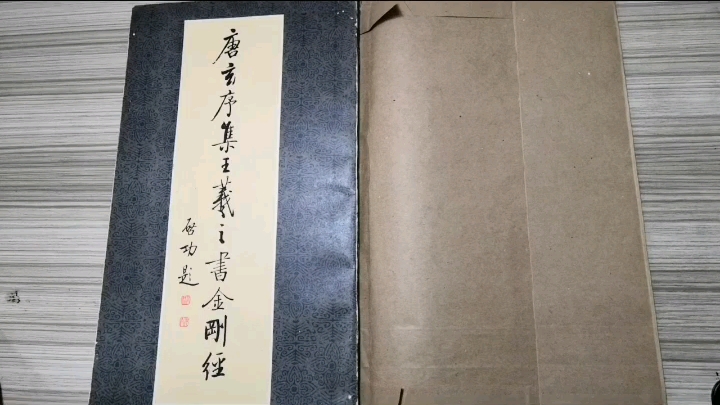 唐玄序集王羲之書金剛經
啟功題